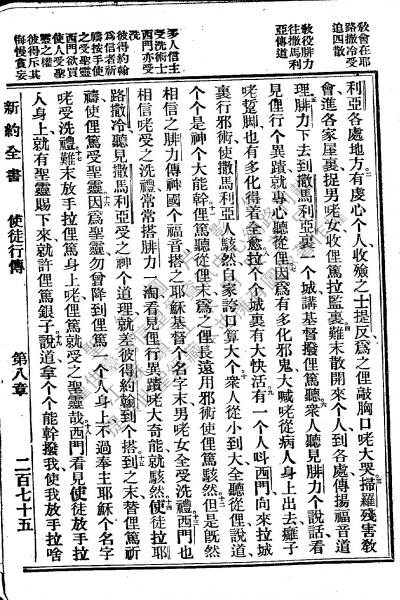 教會在耶
路撒冷受
迫四散
教役腓力
往撒馬利
亞傳道
多人信主
受洗術士
西門亦受
洗
彼得約翰
爲信者祈
禱按手使
之受聖靈
西門欲買
使人受聖
靈之權
彼得斥其
悔慢貪妄
利亞各處地方有虔心个人收殮之士提反爲之俚敲胸口咾大哭掃羅殘害敎
會進各家屋裏捉男咾女收俚篤拉監裏難末散開來个人到各處傳揚福音道
理腓力下去到撒馬利亞裏一个城講基督撥俚篤聽衆人聽見腓力个說話看
俚行个異蹟就專心聽從俚因爲有多化邪鬼大喊咾從病人身上出去癱子
咾蹩脚也有多化得着全愈拉个个城裏有大快活有一个人叫西門向來拉城
裏行邪術使撒馬利亞人駭然自家誇口算大个衆人從小到大全聽從俚說道
个个是神个大能幹俚篤聽從俚末爲之俚長遠用邪術使俚篤駭然但是旣然
相信之腓力傳神國个福音搭之耶穌基督个名字末男咾女全受洗禮西門也
相信咾受之洗禮常常搭腓力一淘看見俚行異蹟咾大奇能就駭然使徒拉耶
路撒冷聽見撒馬利亞受之神个道理就差彼得約翰到个搭到之末替俚篤祈
禱使俚篤受聖靈因爲聖靈勿曾降到俚篤一个人身上不過奉主耶穌个名字
咾受洗禮難末放手拉俚篤身上咾俚篤就受之聖靈哉西門看見使徒放手拉
人身上就有聖靈賜下來就許俚篤銀子說道拿个个能幹撥我使我放手拉啥
新約全書 使徒行傳 第八章 二百七十五